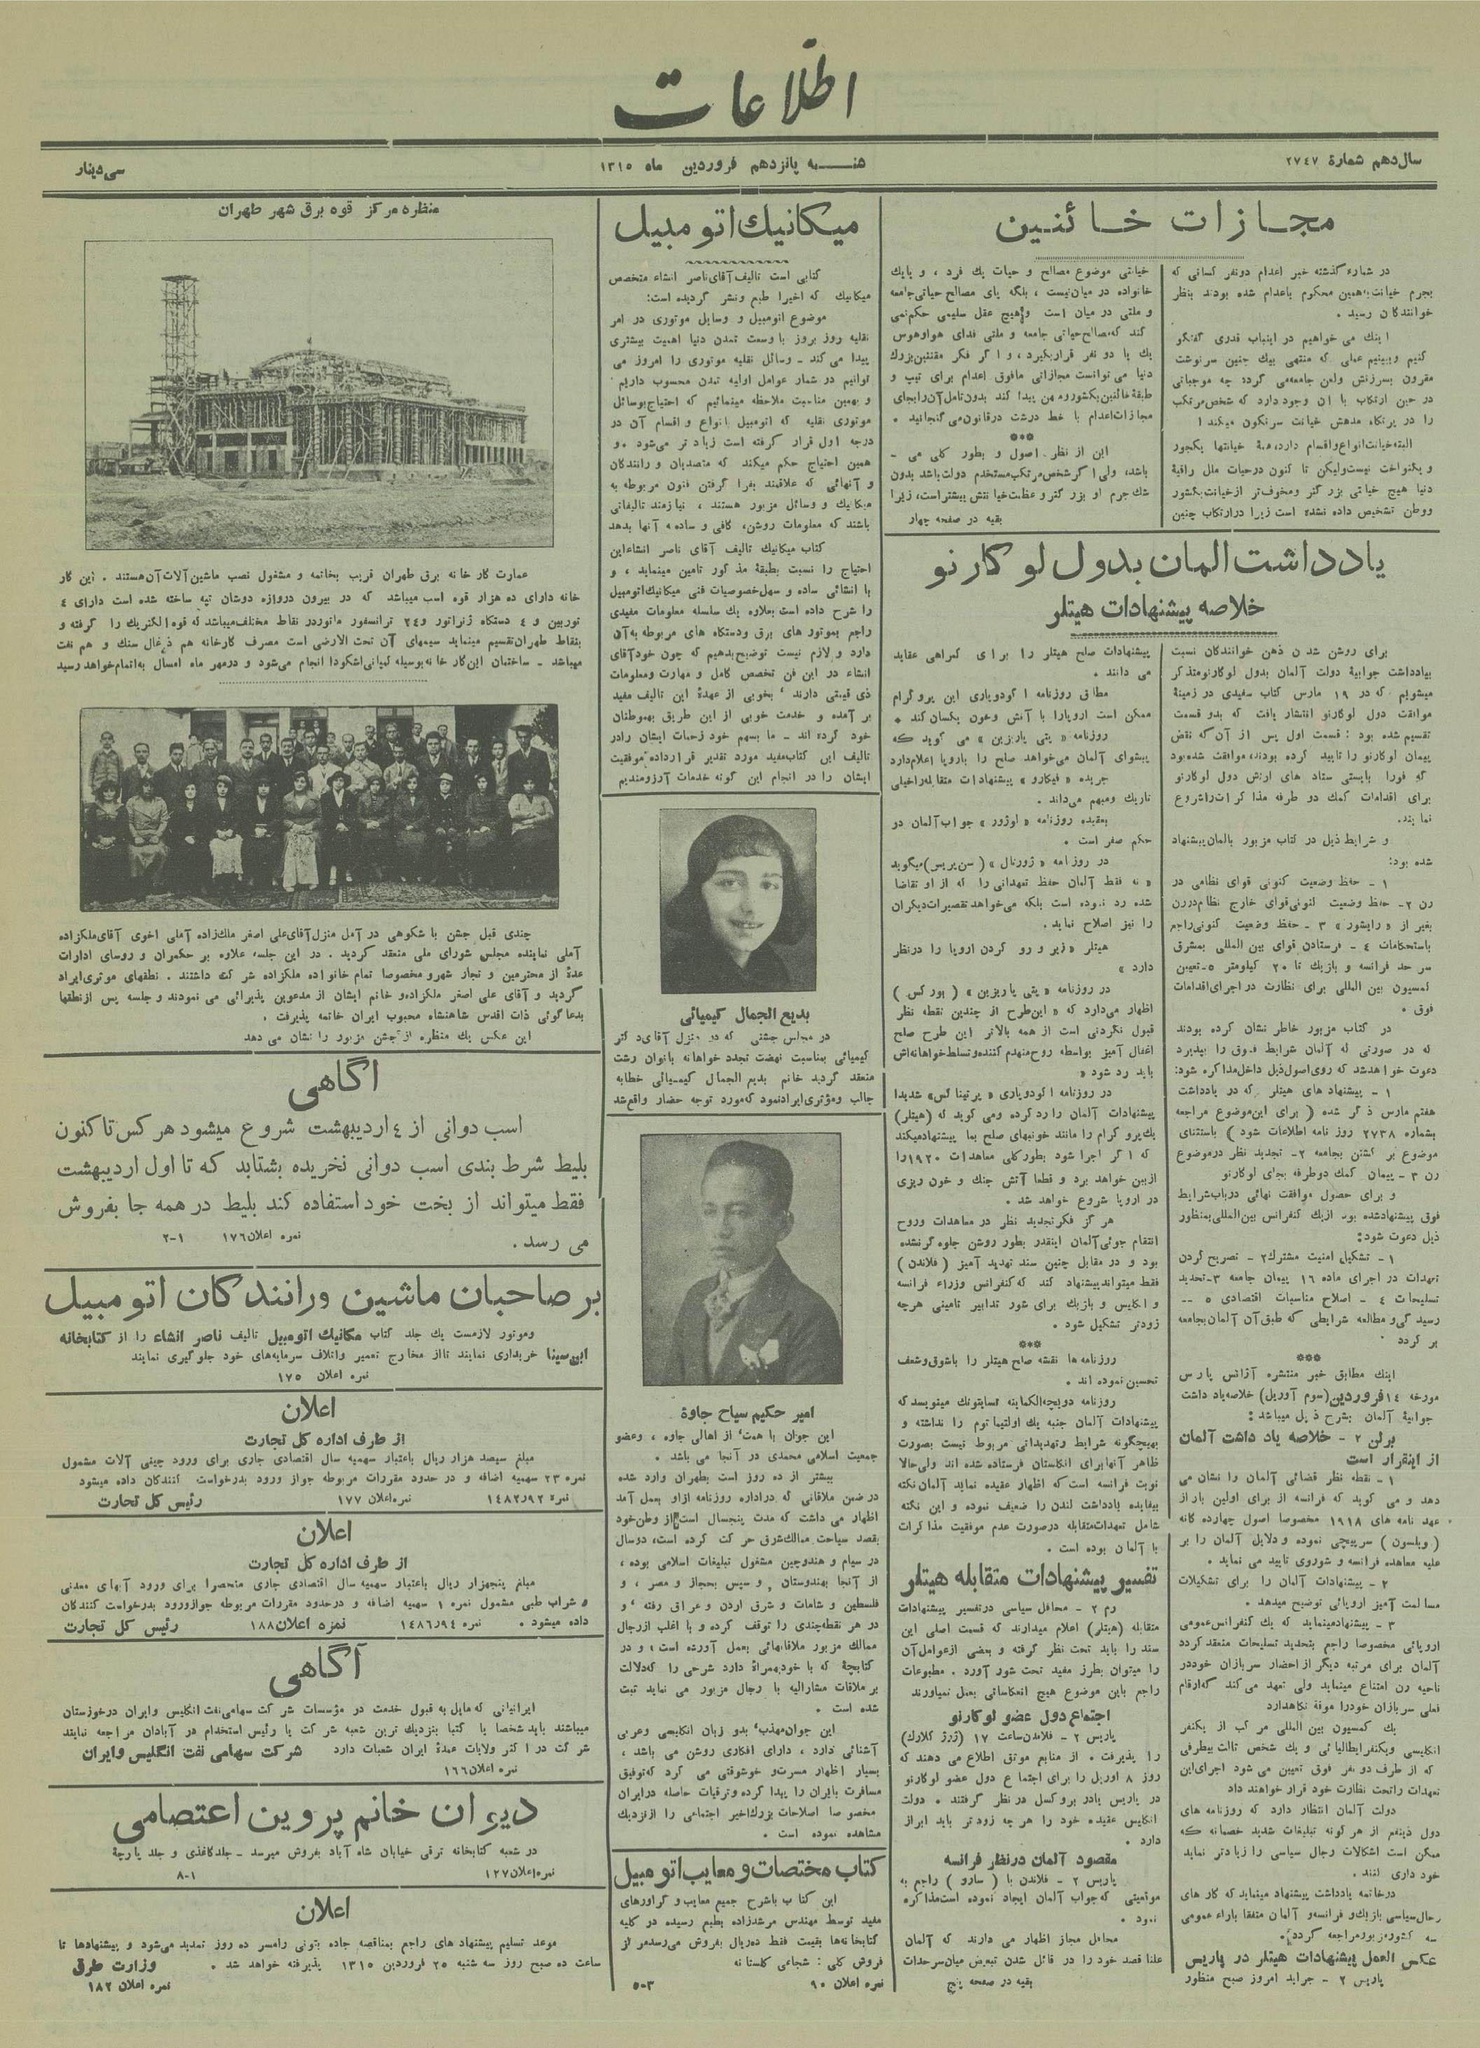 اطلاعات
سال دهم شماره ۲۷۴۷
شنبه پانزدهم فروردین ماه ۱۳۱۵
سی دینار
مجازات خائنین
در شماره گذشته خبر اعدام دونفر کسانی که
بجرم خیانت بمیهن محکوم باعدام شده بودند بنظر
خوانندگان رسید.
اینک می خواهیم در اینباب قدری گفتگو
کنیم و ببینیم عملی که منتهی بیک چنین سرنوشت
مقرون بسرزنش ولعن جامعه می گردد چه موجباتی
در حین ارتکاب با آن وجود دارد که شخص مرتکب
را در پرتگاه مدهش خیانت سرنگون میکند!
البته خیانت انواع و اقسام دارد، همهٔ خیانتها یکجور
و یکنواخت نیست ولیکن تا کنون درحیات ملل راقیهٔ
دنیا هیچ خیانتی بزرگتر و مخوف تر از خیانت بکشور
ووطن تشخیص داده نشده است زیرا درارتکاب چنین
خیانتی موضوع مصالح و حیات یک فرد، و یا یک
خانواده در میان نیست، بلکه پای مصالح حیاتی جامعه
و ملتی در میان است وهیچ عقل سلیمی حکم نمی
کند که مصالح حیاتی جامعه و ملتی فدای هواوهوس
یک یا دو نفر قرار بگیرد، و اگر فکر مقننین بزرگ
دنیا می توانست مجازاتی مافوق اعدام برای تیپ و
طبقهٔ خائنین بکشورو میهن پیدا کند بدون تامل آن رابجای
مجازات اعدام با خط درشت درقانون می گنجانید.
***
این از نظر اصول و بطور کلی می‌-
باشد، ولی اگر شخص مرتکب مستخدم دولت باشد بدون
شك جرم او بزرگتر و عظمت خیانتش بیشتر است، زیرا
بقیه در صفحه چهار
یادداشت المان بدول لوکارنو
خلاصه پیشنهادات هیتلر
برای روشن شدن ذهن خوانندگان نسبت
بیادداشت جوابیهٔ دولت آلمان بدول لوکارنو متذکر
میشویم که در ۱۹ مارس کتاب سفیدی در زمینهٔ
موافقت دول لوکارنو انتشار یافت که بدو قسمت
تقسیم شده بود: قسمت اول پس از آن که نقض
پیمان لوکارنو را تایید کرده بودند، موافقت شده بود
که فورا بایستی ستاد های ارتش دول لوکارنو
برای اقدامات کمک دو طرفه مذاکرات راشروع
نمایند.
و شرایط ذیل در کتاب مزبور بالمان پیشنهاد
شده بود:
۱ - حفظ وضعیت کنونی قوای نظامی در
رن ۲- حفظ وضعیت کنونی قوای خارج نظام درن
بغیر از «رایشور» ۳ - حفظ وضعیت کنونی راجع
باستحکامات ٤ - فرستادن قوای بین المللی بمشرق
سرحد فرانسه و بلژیک تا ۲۰ کیلومتر ۵-تعیین
کمیسیون بین المللی برای نظارت در اجرای اقدامات
فوق.
در کتاب مزبور خاطر نشان کرده بودند
که در صورتی که آلمان شرایط فوق را بپذیرد
دعوت خواهد شد که روی اصول ذیل داخل مذاکره شود:
۱ - پیشنهاد های هیتلر که در یادداشت
هفتم مارس ذکر شده (برای این موضوع مراجعه
بشماره ۲۷۳۸ روزنامه اطلاعات شود) باستثنای
موضوع برگشتن بجامعه ۲- تجدید نظر درموضوع
رن ۳ - پیمان کمک دوطرفه بجای لوکارنو
و برای حصول موافقت نهائی درباب شرایط
فوق پیشنهاد شده بود از یک کنفرانس بین المللی بمنظور
ذیل دعوت شود:
۱ - تشکیل امنیت مشترک ۲ - تصریح کردن
تعهدات در اجرای ماده ۱۶ پیمان جامعه ۳-تحدید
تسلیحات ٤ - اصلاح مناسبات اقتصادی ۵ --
رسیدگی و مطالعه شرایطی که طبق آن آلمان بجامعه
برگردد.
***
اینک مطابق خبر منتشره آژانس پارس
مورخه ۱۴ فروردین (سوم آوریل) خلاصه یادداشت
جوابیهٔ آلمان بشرح ذیل میباشد:
برلن ۲ - خلاصه یاد داشت آلمان
از اینقرار است
۱ - نقطه نظر قضائی آلمان را نشان می
دهد و می گوید که فرانسه از برای اولین بار از
عهد نامه های ۱۹۱۸ مخصوصا اصول چهارده گانه
(ویلسون) سرپیچی نموده و دلایل آلمان را بر
علیه معاهده فرانسه و شوروی تایید می نماید.
۲ - پیشنهادات آلمان را برای تشکیلات
مسالمت آمیز اروپائی توضیح میدهد.
۳ - پیشنهاد مینماید که یک کنفرانس عمومی
اروپائی مخصوصا راجع بتحدید تسلیحات منعقد گردد
آلمان برای مرتبه دیگر از احضار سربازان خود در
ناحیه رن امتناع مینماید ولی تعهد می کند که ارقام
فعلی سربازان خود را موقة نگاهدارد
یک کمسیون بین المللی مرکب از یکنفر
انگلیسی و یکنفر ایطالیائی و یک شخص ثالث بیطرفی
که از طرف دو نفر فوق تعیین می شود اجرای این
تعهدات را تحت نظارت خود قرار خواهند داد
دولت آلمان انتظار دارد که روزنامه های
دول ذینفع از هر گونه تبلیغات شدید خصمانه که
ممکن است اشکالات رجال سیاسی را زیادتر نماید
خود داری کنند.
در خاتمه یادداشت پیشنهاد مینماید که کار های
رجال سیاسی بلژیک و فرانسه و آلمان متفقا باراء عمومی
سه کشور مزبور مراجعه گردد.
عکس العمل پیشنهادات هیتلر در پاریس
پاریس ۲ - جراید امروز صبح منظور
پیشنهادات صلح هیتلر را برای گمراهی عقاید
می دانند.
مطابق روزنامه اکودوپاری این پروگرام
ممکن است اروپا را با آتش وخون یکسان کند.
روزنامه «پتی پاریزین» می گوید که
پیشوای آلمان می‌خواهد صلح را باروپا اعلام دارد
جریده «فیگارو» پیشنهادات متقابله را خیلی
تاریک و مبهم می‌داند.
بعقیده روزنامه «لوژور» جواب آلمان در
حکم صفر است.
در روزنامه «ژورنال» (سن بریس) میگوید
«نه فقط آلمان حفظ تعهداتی را که از او تقاضا
شده رد نموده است بلکه می‌خواهد تقصیرات دیگران
را نیز اصلاح نماید.
هیتلر «زیر و رو کردن اروپا را درنظر
دارد»
در روزنامه «پتی پاریزین» (بورگس)
اظهار می‌دارد که «این طرح از چندین نقطه نظر
قبول نکردنی است از همه بالاتر این طرح صلح
اغفال آمیز بواسطه روح منهدم کننده و تسلط خواهانه‌اش
باید رد شود»
در روزنامه اکودوپاری «پرتیناکس» شدیدا
پیشنهادات آلمان را رد کرده ومی گوید که (هیتلر)
یک پروگرام را مانند خونبهای صلح بما پیشنهاد میکند
که اگر اجرا شود بطور کلی معاهدات ۱۹۲۰ را
از بین خواهد برد و قطعا آتش جنگ و خون ریزی
در اروپا شروع خواهد شد.
هرگز فکر تجدید نظر در معاهدات وروح
انتقام جوئی آلمان اینقدر بطور روشن جلوه گر نشده
بود و در مقابل چنین سند تهدید آمیز (فلاندن)
فقط میتواند پیشنهاد کند که کنفرانس وزراء فرانسه
و انگلیس و بلژیک برای شور تدابیر تامینی هرچه
زودتر تشکیل شود.
***
روزنامه ها نقشه صلح هیتلر را باشوق وشعف
تحسین نموده اند.
روزنامه دویچه الگماینه تسایتونگ مینویسد که
پیشنهادات آلمان جنبه یک اولتیماتوم را نداشته و
بهیچگونه شرایط و تهدیداتی مربوط نیست بصورت
ظاهر آنها برای انگلستان فرستاده شده اند ولی حالا
نوبت فرانسه است که اظهار عقیده نماید آلمان نکته
بیفایده یادداشت لندن را ضعیف نموده و این نکته
شامل تعهدات متقابله درصورت عدم موفقیت مذاکرات
با آلمان بوده است.
تفسیر پیشنهادات متقابله هیتلر
رم ۲ - محافل سیاسی در تفسیر پیشنهادات
متقابله (هیتلر) اعلام میدارند که قسمت اصلی این
سند را باید تحت نظر گرفته و بعضی از عوامل آن
را میتوان بطرز مفید تحت شور آورد. مطبوعات
راجع باین موضوع هیچ انعکاساتی بعمل نمیاورند
اجتماع دول عضو لوکارنو
پاریس ۲ - فلاندن ساعت ۱۷ (ژرژ کلارک)
را پذیرفت. از منابع موثق اطلاع می دهند که
روز ۸ اوریل را برای اجتماع دول عضو لوکارنو
در پاریس یا در بروکسل در نظر گرفتند. دولت
انگلیس عقیده خود را هر چه زودتر باید ابراز
دارد.
مقصود آلمان درنظر فرانسه
پاریس ۲ - فلاندن با (سارو) راجع به
موقعیتی که جواب آلمان ایجاد نموده است مذاکره
نمود.
محافل مجاز اظهار می دارند که آلمان
علنا قصد خود را در قائل شدن تبعیض میان سرحدات
بقیه در صفحه پنج
میکانیک اتومبیل
کتابی است تالیف آقای ناصر انشاء متخصص
میکانیک که اخیرا طبع ونشر گردیده است:
موضوع اتومبیل و وسایل موتوری در امر
نقلیه روز بروز با وسعت تمدن دنیا اهمیت بیشتری
پیدا می کند - وسائل نقلیه موتوری را امروز می
توانیم در شمار عوامل اولیه تمدن محسوب داریم
و بهمین مناسبت ملاحظه مینمائیم که احتیاج بوسائل
موتوری نقلیه که اتومبیل بانواع و اقسام آن در
درجه اول قرار گرفته است زیادتر می‌شود. و
همین احتیاج حکم میکند که متصدیان و رانندگان
و آنهائی که علاقمند بفرا گرفتن فنون مربوطه به
میکانیک و وسائل مزبور هستند، نیازمند تالیفاتی
باشند که معلومات روشن، کافی و ساده به آنها بدهد
کتاب میکانیک تالیف آقای ناصر انشاء این
احتیاج را نسبت بطبقهٔ مذکور تامین مینماید، و
با انشائی ساده و سهل خصوصیات فنی میکانیک اتومبیل
را شرح داده است بعلاوه یک سلسله معلومات مفیدی
راجع بموتور های برق ودستگاه های مربوطه به آن
دارد و لازم نیست توضیح بدهیم که چون خود آقای
انشاء در این فن تخصص کامل و مهارت ومعلومات
ذی قیمتی دارند، بخوبی از عهدهٔ این تالیف مفید
بر آمده و خدمت خوبی از این طریق بهموطنان
خود کرده اند - ما بسهم خود زحمات ایشان را در
تالیف این کتاب مفید مورد تقدیر قرارداده موفقیت
ایشان را در انجام این گونه خدمات آرزومندیم
بدیع الجمال کیمیائی
در مجلس جشنی که در منزل آقای دکتر
کیمیائی بمناسبت نهضت تجدد خواهانه بانوان رشت
منعقد گردید خانم بدیع الجمال کیمیائی خطابه
جالب ومؤثری ایراد نمود که مورد توجه حضار واقع شد
امیر حکیم سیاح جاوة
این جوان با همت از اهالی جاوه، وعضو
جمعیت اسلامی محمدی در آنجا می باشد.
بیشتر از ده روز است بطهران وارد شده
در ضمن ملاقاتی که دراداره روزنامه ازاو بعمل آمد
اظهار می داشت که مدت پنجسال است از وطن خود
بقصد سیاحت ممالک شرق حرکت کرده است، دوسال
در سیام و هندوچین مشغول تبلیغات اسلامی بوده،
از آنجا بهندوستان، و سپس بحجاز و مصر، و
فلسطین و شامات و شرق اردن و عراق رفته، و
در هر نقطه چندی را توقف کرده و با اغلب از رجال
ممالک مزبور ملاقاتهائی بعمل آورده است، و در
کتابچهٔ که با خود همراه دارد شرحی را که دلالت
بر ملاقات مشارالیه با رجال مزبور می نماید ثبت
شده است.
این جوان مهذب، بدو زبان انگلیسی وعربی
آشنائی دارد، دارای افکاری روشن می باشد،
بسیار اظهار مسرت و خوشوقتی می کرد که توفیق
مسافرت بایران را پیدا کرده وترقیات حاصله در ایران
مخصوصا اصلاحات بزرگ اخیر اجتماعی را از نزدیک
مشاهده نموده است.
کتاب مختصات و معایب اتومبیل
این کتاب باشرح جمیع معایب و گراورهای
مفید توسط مهندس مرشدزاده بطبع رسیده در کلیه
کتابخانه‌ها بقیمت فقط ده ریال بفروش می‌رسد مرکز
فروش کلی: شجاعی گلستانه
نمره اعلان ۹۰
۵-۳
منظره مرکز قوه برق شهر طهران
عمارت کارخانه برق طهران قریب بخاتمه و مشغول نصب ماشین آلات آن هستند. این کار
خانه دارای ده هزار قوه اسب میباشد که در بیرون دروازه دوشان تپه ساخته شده است دارای ٤
توربین و ٤ دستگاه ژنراتور و ۲٤ ترانسفورماتور در نقاط مختلف میباشد که قوه الکتریک را گرفته و
بنقاط طهران تقسیم مینماید سیمهای آن تحت الارضی است مصرف کارخانه هم ذغال سنگ و هم نفت
میباشد - ساختمان این کارخانه بوسیله کمپانی اشکودا انجام می‌شود و در مهر ماه امسال به اتمام خواهد رسید
چندی قبل جشن با شکوهی در آمل منزل آقای علی اصغر ملک زاده آملی اخوی آقای ملکزاده
آملی نماینده مجلس شورای ملی منعقد گردید. در این جلسه علاوه بر حکمران و روسای ادارات
عدهٔ از محترمین و تجار شهر و مخصوصا تمام خانواده ملکزاده شرکت داشتند. نطقهای موثری ایراد
گردید و آقای علی اصغر ملکزاده و خانم ایشان از مدعوین پذیرائی می نمودند و جلسه پس از نطقها
بدعاگوئی ذات اقدس شاهنشاه محبوب ایران خاتمه پذیرفت.
این عکس یک منظره از جشن مزبور را نشان می دهد
آگاهی
اسب دوانی از ٤ اردیبهشت شروع میشود هر کس تاکنون
بلیط شرط بندی اسب دوانی نخریده بشتابد که تا اول اردیبهشت
فقط میتواند از بخت خود استفاده کند بلیط در همه جا بفروش
می رسد.
نمره اعلان ۱۷۶
۲-۱
بر صاحبان ماشین ورانندگان اتومبیل
وموتور لازمست یک جلد کتاب مکانیک اتومبیل تالیف ناصر انشاء را از کتابخانه
ابن سینا خریداری نمایند تا از مخارج تعمیر واتلاف سرمایه‌های خود جلوگیری نمایند
نمره اعلان ۱۷۵
اعلان
از طرف اداره کل تجارت
مبلغ سیصد هزار ریال باعتبار سهمیه سال اقتصادی جاری برای ورود چینی آلات مشمول
نمره ۲۳ سهمیه اضافه و در حدود مقررات مربوطه جواز ورود بدرخواست کنندگان داده میشود
نمره ۱۴۸۲٫۹۲
نمره اعلان ۱۷۷
رئیس کل تجارت
اعلان
از طرف اداره کل تجارت
مبلغ پنجهزار ریال باعتبار سهمیه سال اقتصادی جاری منحصرا برای ورود آبهای معدنی
و شراب طبی مشمول نمره ۱ سهمیه اضافه و درحدود مقررات مربوطه جواز ورود بدرخواست کنندگان
داده میشود.
نمره ۱۴۸۶٫۹۴
نمره اعلان ۱۸۸
رئیس کل تجارت
آگاهی
ایرانیانی که مایل به قبول خدمت در مؤسسات شرکت سهامی نفت انگلیس وایران در خوزستان
میباشند باید شخصا یا کتبا بنزدیک ترین شعبه شرکت یا رئیس استخدام در آبادان مراجعه نمایند
شرکت در اکثر ولایات عمدهٔ ایران شعبات دارد
شرکت سهامی نفت انگلیس وایران
نمره اعلان ۱۶۶
دیوان خانم پروین اعتصامی
در شعبه کتابخانه ترقی خیابان شاه آباد بفروش میرسد - جلد کاغذی و جلد پارچهٔ
نمره اعلان ۱۲۷
۸-۱
اعلان
موعد تسلیم پیشنهاد های راجع بمناقصه جاده بتونی رامسر ده روز تمدید می‌شود و پیشنهادها تا
ساعت ده صبح روز سه شنبه ۲۵ فروردین ۱۳۱۵ پذیرفته خواهد شد.
وزارت طرق
نمره اعلان ۱۸۲